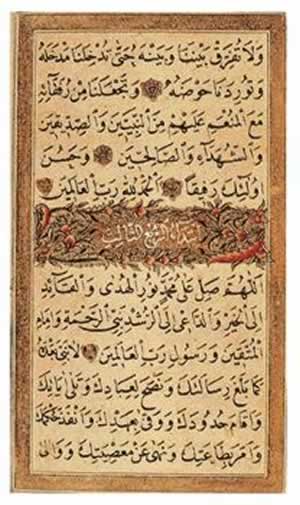 وَلَا تُفَرِّقْ بَيْنَنَا وَبَيْنَهُ حَتَّى تُدْخِلَنَا مُدْخَلَهُ
وَتُورِدَنَا حَوْضَهُ وَتَجْعَلَنَا مِنْ رُفَقَائِهِ
مَعَ الْمُنْعَمِ عَلَيْهِمْ مِنَ النَّبِيِّينَ وَالصِّدِّيقِينَ
وَالشُّهَدَاءِ وَالصَّالِحِينَ وَحَسُنَ
اُولَئِكَ رَفِيقًا اَلْحَمْدُ لِلَّهِ رَبِّ الْعَالَمِينَ
ابتداء الربع الثالث
اَللَّهُمَّ صَلِّ عَلَى مُحَمَّدٍ نُورِ الْهُدَى وَالْقَائِدِ
اِلَى الْخَيْرِ وَالدَّاعِي اِلَى الرُّشْدِ نَبِيِّ الرَّحْمَةِ وَاِمَامِ
الْمُتَّقِينَ وَرَسُولِ رَبِّ الْعَالَمِينَ لَا نَبِيَّ بَعْدَهُ
كَمَا بَلَّغَ رِسَالَتَكَ وَنَصَحَ لِعِبَادِكَ وَتَلَى اٰيَاتِكَ
وَاَقَامَ حُدُودَكَ وَوَفَى بِعَهْدِكَ وَاَنْفَذَ حُكْمَكَ
وَاَمَرَ بِطَاعَتِكَ وَنَهَى عَنْ مَعْصِيَتِكَ وَوَالَى